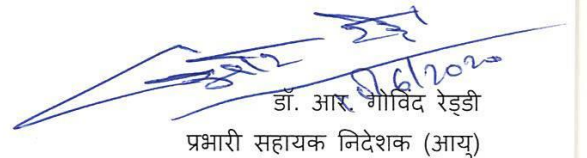 /6/2020
डॉ. आर. गोविंद रेड्डी
प्रभारी सहायक निदेशक (आयु)